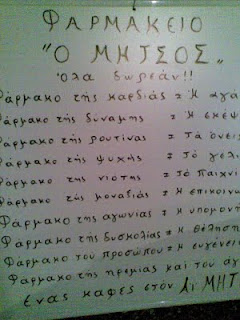 ΦΑΡΜΑΚΕΙΟ
"Ο ΜΗΤΣΟΣ"
Όλα δωρεάν!!
Φάρμακο τής καρδιάς = Η αγά
Φάρμακο τής δύναμης = Η σκέψ
Φάρμακο τής ρουτίνας = Τα όνει
Φάρμακο τής ψυχής = Το γέλι
Φάρμακο τής νιότης = Το παιχνί
Φάρμακο τής μοναξιάς = Η επικοινω
Φάρμακο της αγωνίας = Η υπομον
Φάρμακο τής δυσκολίας = Η θέληση
Φάρμακο του προσώπου = Η ευγένει
Φάρμακο τής ηρεμίας και του αγ
ένας καφές στον Αϊ ΜΗΤ